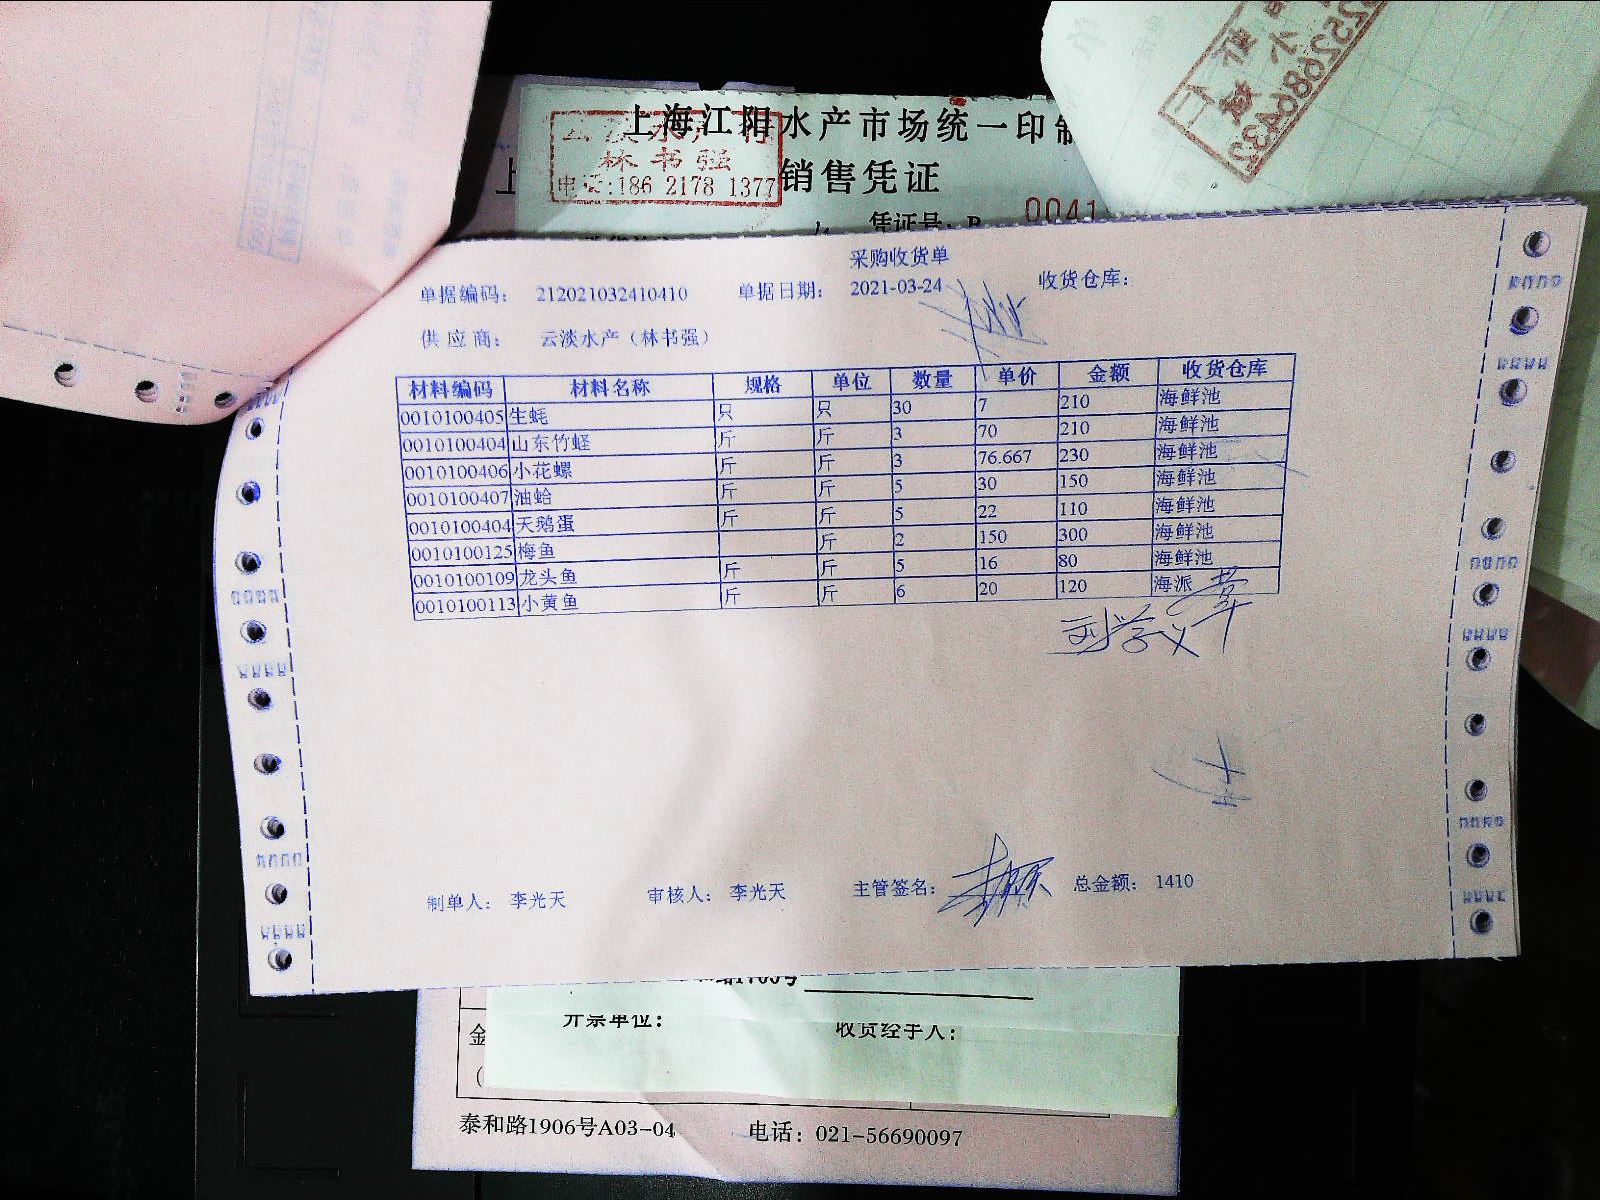 上海江阳水产市场统一印制
云淡水产行
林书强
电话:186 2178 1377
销售凭证
凭证号: B 0041
25268643
采购收货单
单据编码: 212021032410410 单据日期: 2021-03-24 收货仓库:
供应商: 云淡水产（林书强）
材料编码 材料名称 规格 单位 数量 单价 金额 收货仓库
0010100405 生蚝 只 只 30 7 210 海鲜池
0010100404 山东竹蛏 斤 斤 3 70 210 海鲜池
0010100406 小花螺 斤 斤 3 76.667 230 海鲜池
0010100407 油蛤 斤 斤 5 30 150 海鲜池
0010100404 天鹅蛋 斤 斤 5 22 110 海鲜池
0010100125 梅鱼 斤 2 150 300 海鲜池
0010100109 龙头鱼 斤 斤 5 16 80 海鲜池
0010100113 小黄鱼 斤 斤 6 20 120 海派
刘学义
制单人: 李光天 审核人: 李光天 主管签名: 总金额: 1410
开票单位: 收货经手人:
金
泰和路1906号A03-04 电话: 021-56690097